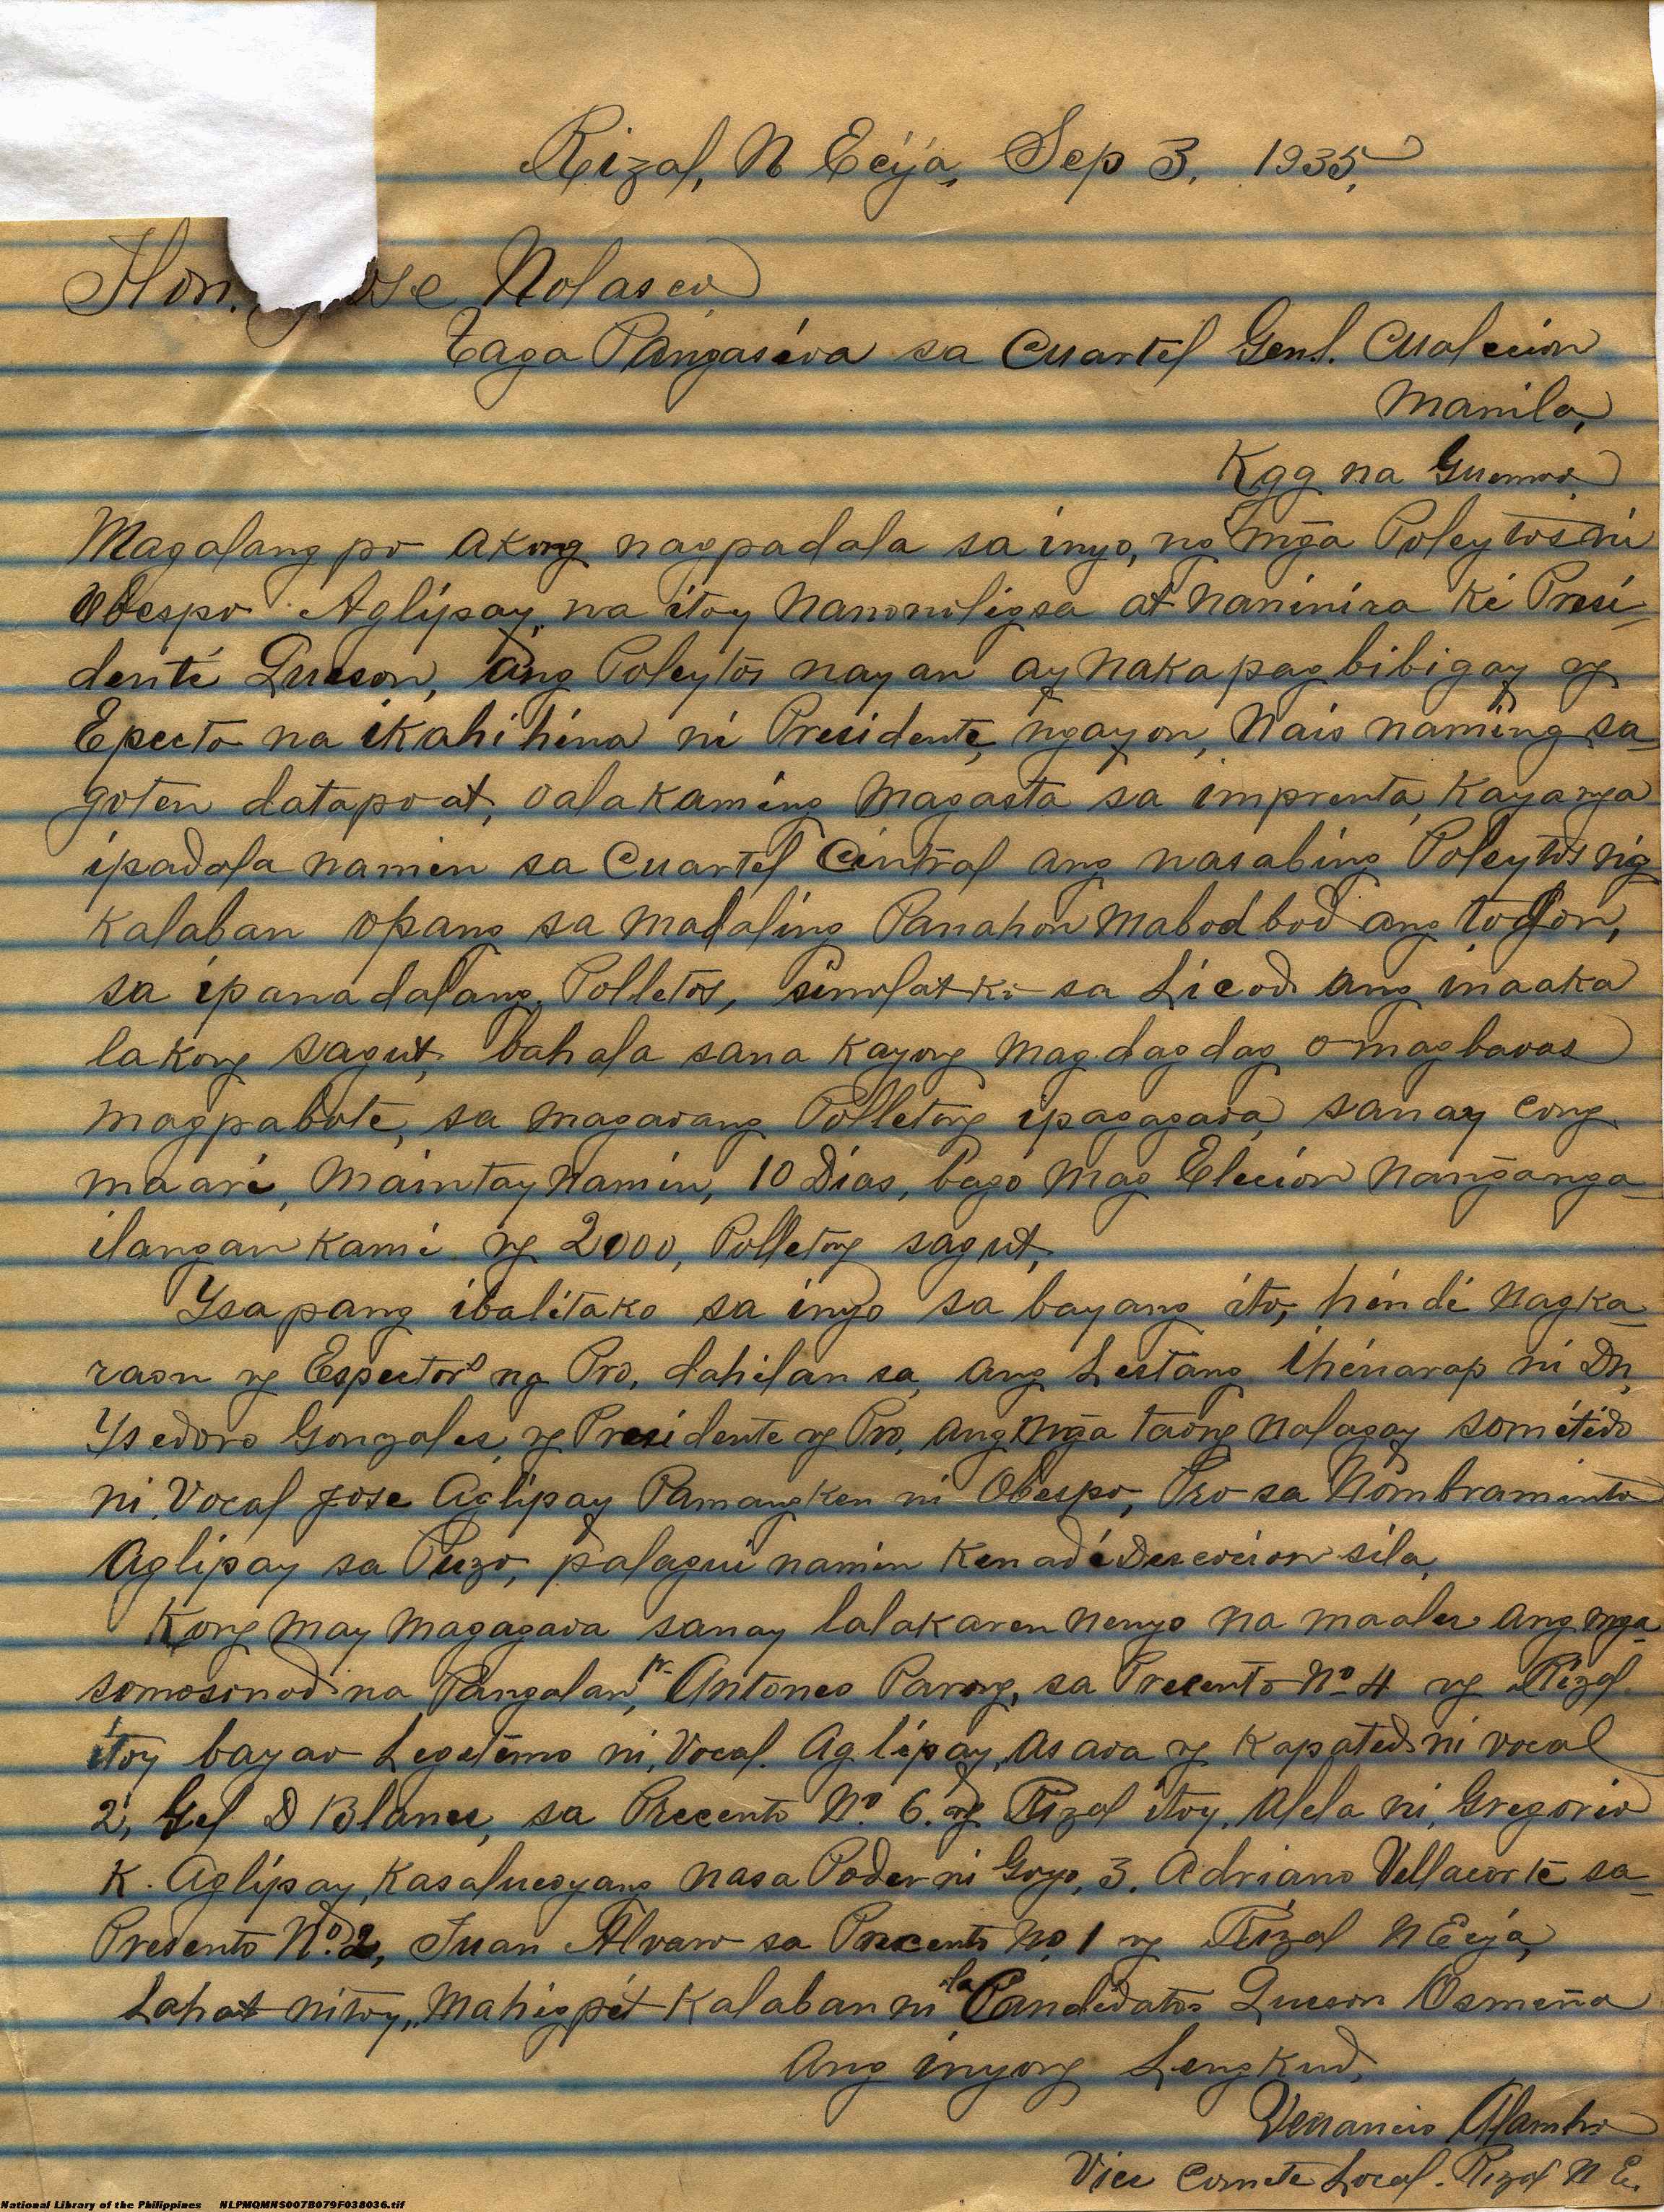 Rizal, N Ecija, Sep 3, 1935,
Hon. Jose Nolasco
Taga Pangasiwa sa Cuartel Genl. Cualecion
Manila,
Kgg na Guenoo
Magalang po akong nagpadala sa inyo, ng mga Poleytos ni
Obespo Aglipay, na itoy nanonoligsa at naninira ki Presi-
dente Queson, Ang Poleytos nayan ay nakapagbibigay ng
Epecto na ikahihina ni Presidente, ngayon, Nais naming sa-
goten datapoat, oala kaming magasta sa imprenta, kayanga
ipadala namen sa Cuartel Cintral ang nasabing Poleytos ng
kalaban opang sa madaling Panahon mabodbod ang todlon,
sa ipanadalang Polletos, sinolat ko sa Licod ang inaaka
la kong sagut, bahala sana kayong mag dagdag o magbawas
magpabote, sa magawang Polletong ipagagawa, sanay cong
maari, maintay namin, 10 Dias, bago mag Elecion nanganga-
ilangan kami ng 2000, Polletong sagut,
Ysa pang ibalitako sa inyo sa bayang ito, hindi nagka-
raon ng Espector ng Pro, dahilan sa, ang Lestang ihenarap ni Dn,
Ysedoro Gonzales, ng Presidente ng Pro, ang mga taong nalagay sometido
ni Vocal Jose Aglipay Pamangken ni Obespo, Pro sa Nombraminto
Aglipay sa Puzo, palagui namin
Kong may magagawa sanay lalakaren nenyo na maales ang mga
somosonod na Pangalan, 1o- Antoneo Parong, sa Precento No 4 ng Rizal
itoy bayaw Legetemo ni, Vocal. Aglipay, asawa ng kapated ni vocal
2, Gel D Blanes, sa Precento No. 6. ng Rizal itoy, Alela ni, Gregorio
K. Aglipay, kasalucoyang nasa Poder ni Goyo, 3. Adriano Vellacorte sa-
Presento No. 2, Juan Alvaro sa Precento No, 1 ng Rizal N Ecija,
Lahat nitoy, mahigpit kalaban ni la Candidatos Queson Osmeña
Ang inyong Lengkud,
Venancio Alambra
Vice Comete Local. Rizal N E.
National Library of the Philippines NLPMQMNS007B079F038036.tif